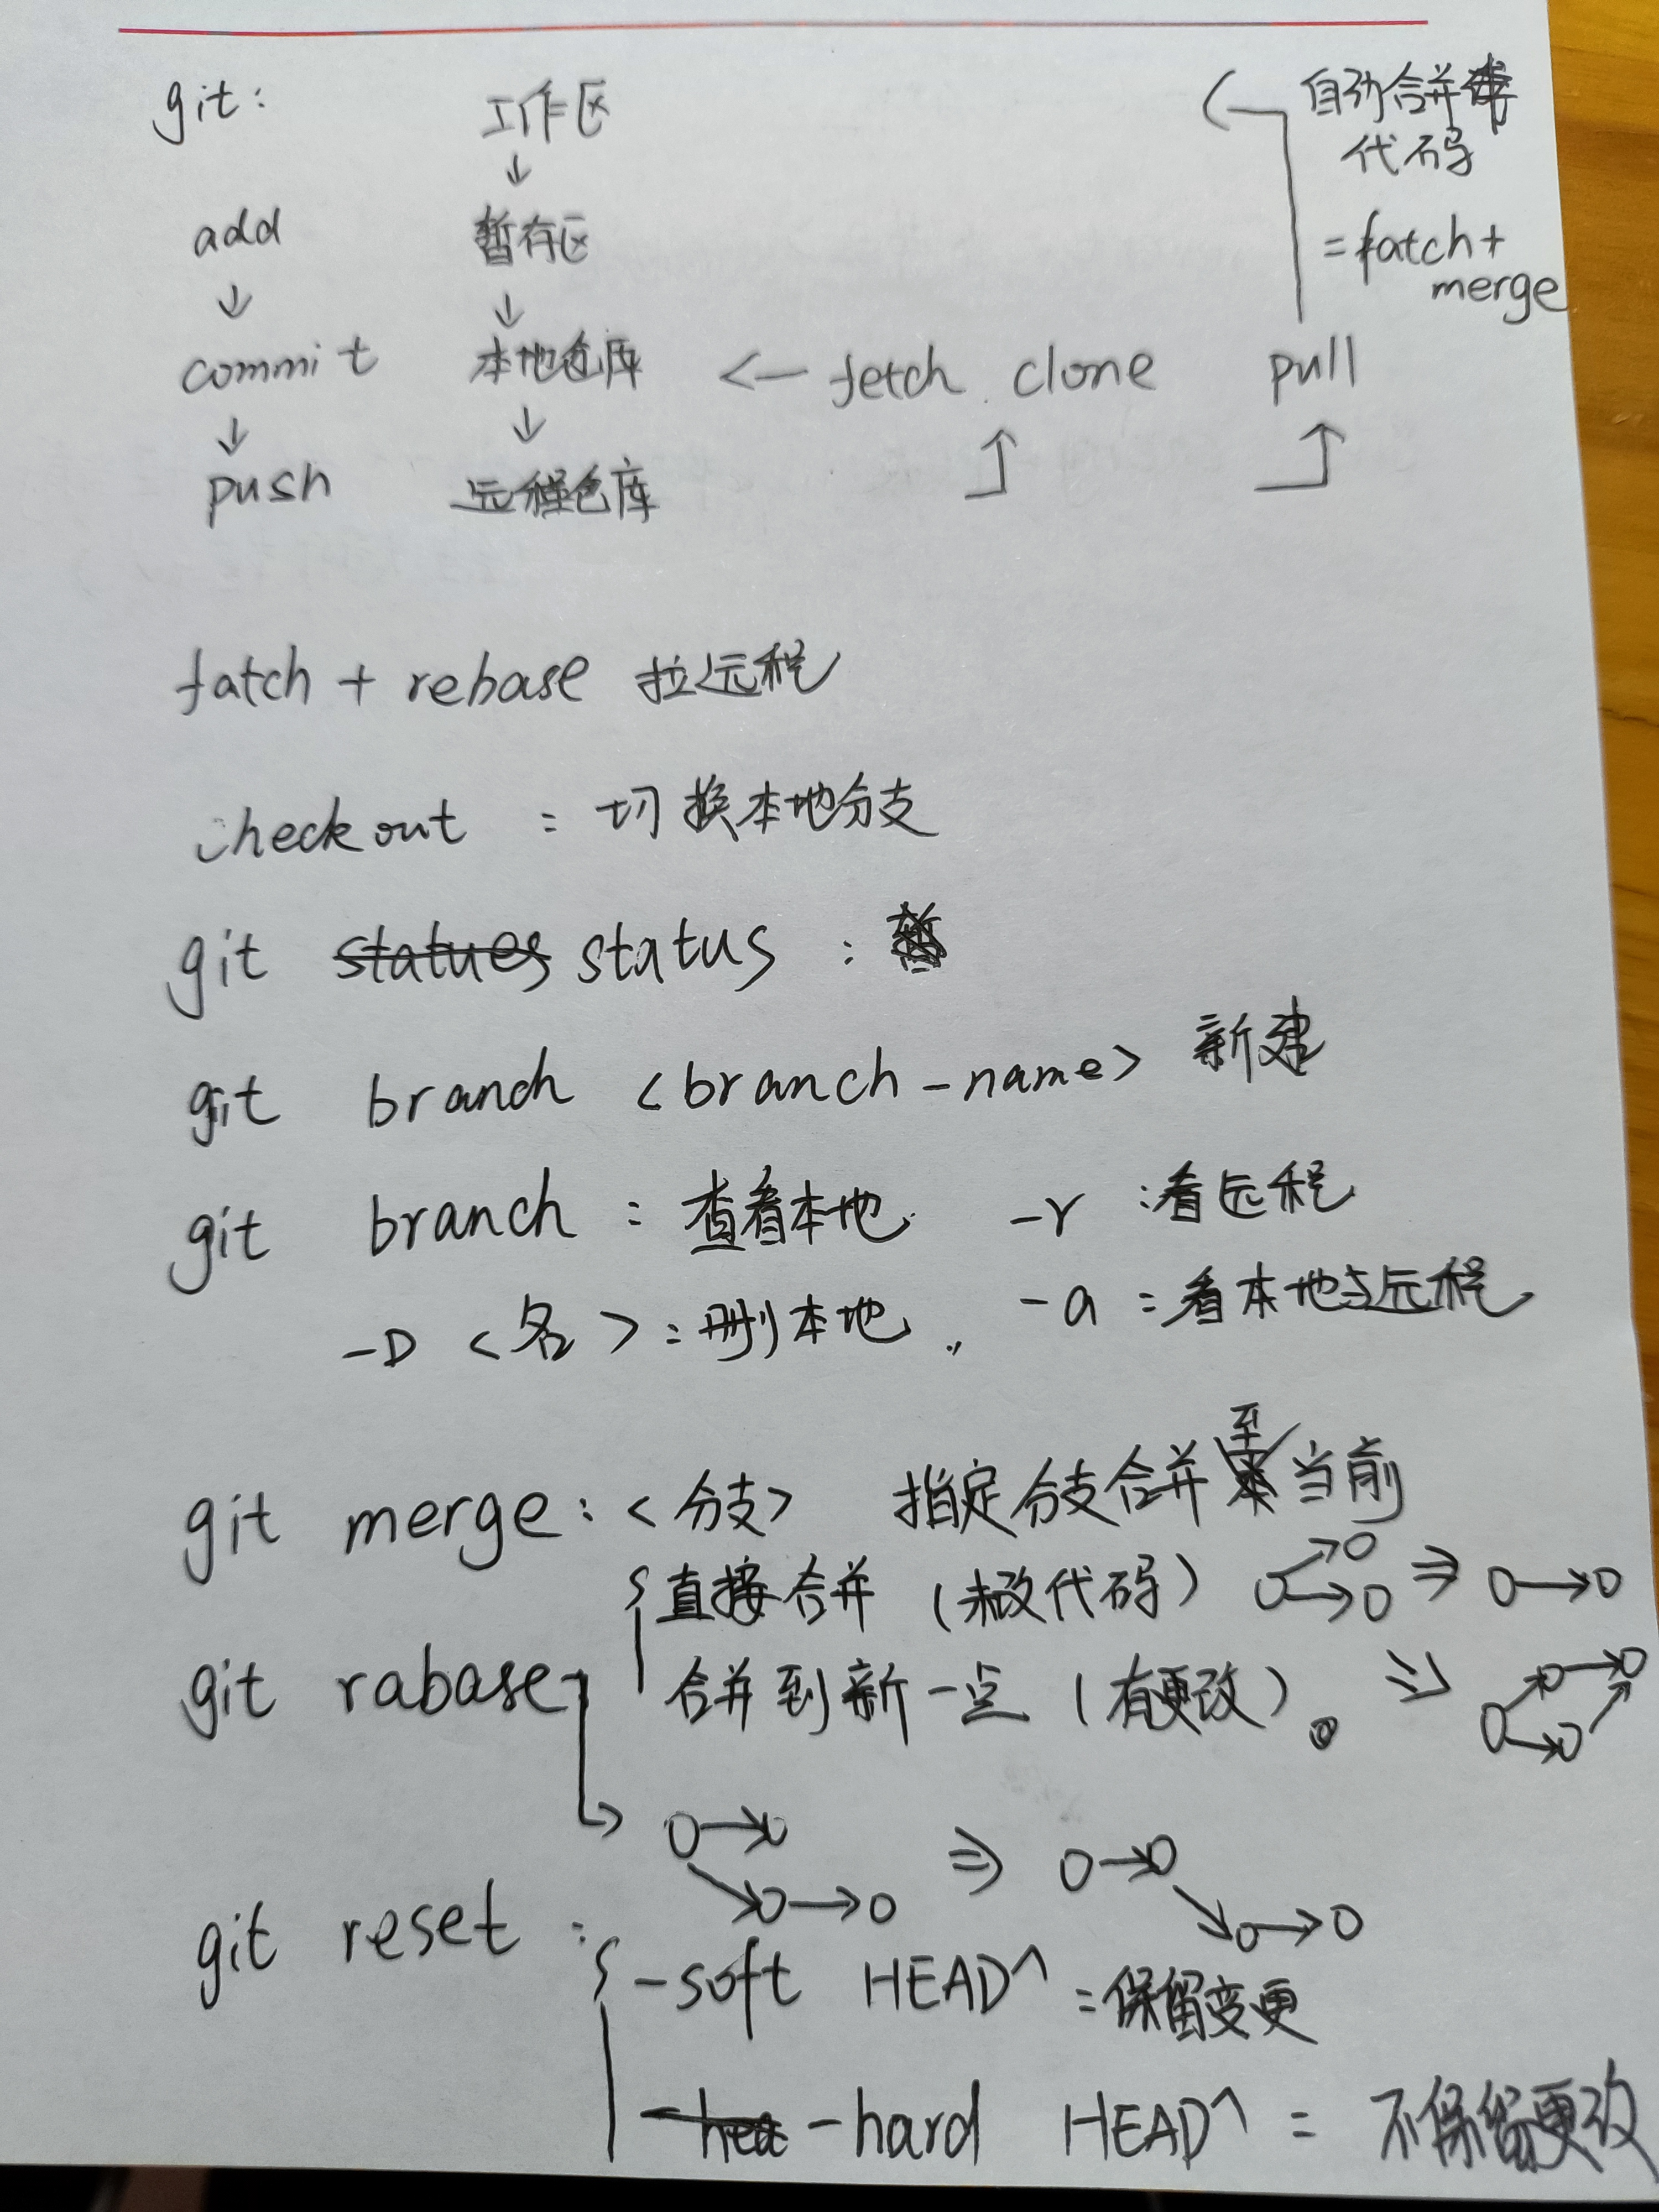 git: 工作区 自动合并
↓ 代码
add 暂存区 =fatch+
↓ ↓ merge
commit 本地仓库 <— fetch clone pull
↓ ↓
push 远程仓库
fatch + rebase 拉远程
checkout : 切换本地分支
git statues status :
git branch <branch-name> 新建
git branch : 查看本地 -r :看远程
-D <名> : 删本地. -a : 看本地与远程
git merge: <分支> 指定分支合并至当前
直接合并 (未改代码)
git rabase 合并到新一点 (有更改)。
git reset :
-soft HEAD^ =保留变更
-hea -hard HEAD^ = 不保留更改